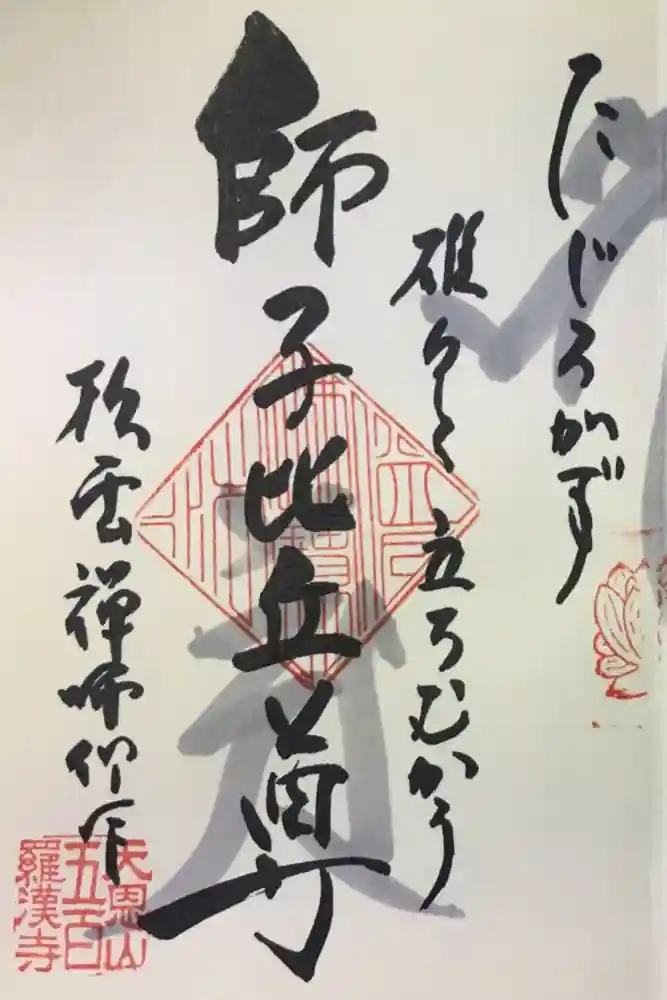 たじろがず
確と 立ちむかう
師子比丘尊
松雲禅師御作
天恩山
五百
羅漢寺